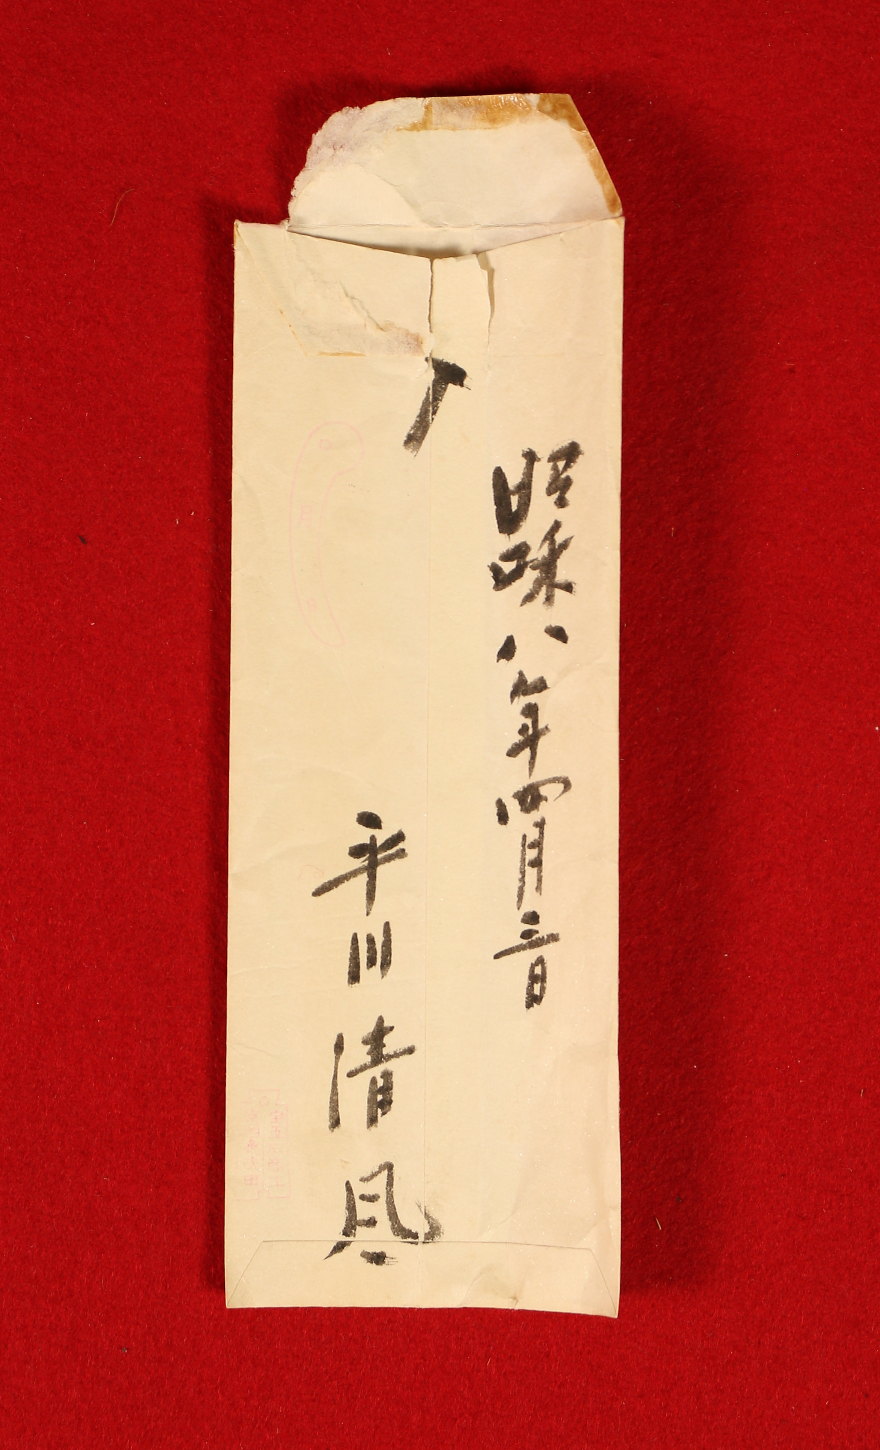 昭和八年四月三日
平川清風